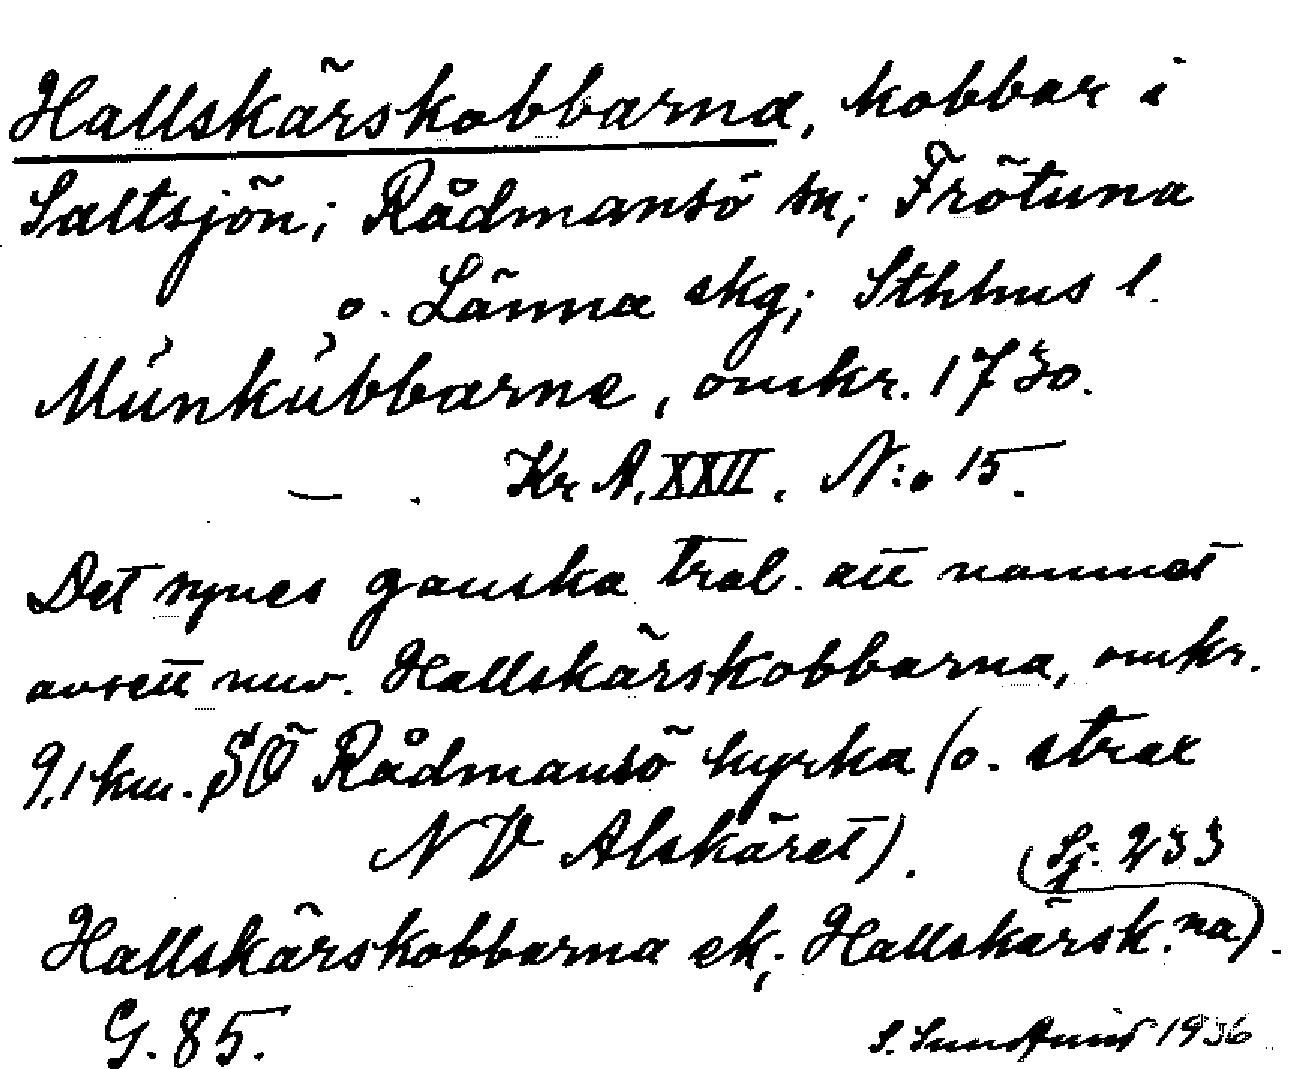 Hallskärskobbarna, kobbar i
Saltsjön; Rådmansö sn; Frötuna
o. Länna skg; Sthlms l.
Munkubbarne, omkr. 1730.
— . Kr A. XXII. N:o 15.
Det synes ganska trol. att namnet
avsett nuv. Hallskärskobbarna, omkr.
9,1 km. SÖ Rådmansö kyrka (o. strax
NV Alskäret).
(Sj. 233
Hallskärskobbarna ek; Hallskärsk.na).
G. 85.
1936